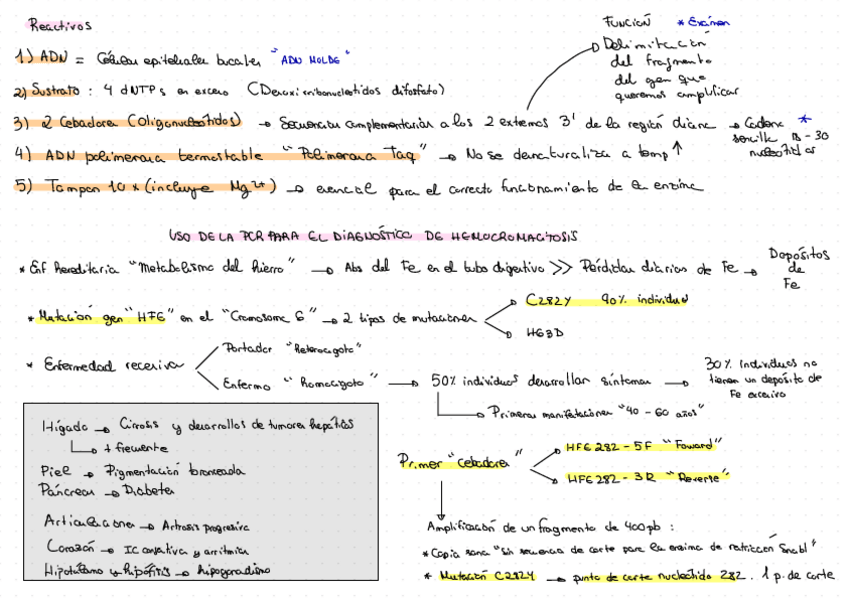 Reactivos
1) ADN = Células epiteliales bucales "ADN MOLDE"
2) Sustrato : 4 dNTPs en exceso (Desoxirribonucleótidos difosfato)
3) 2 Cebadores (Oligonucleótidos) → Secuencias complementarias a los 2 extremos 3' de la región diana → Cadena *
sencilla 15 - 30
nucleótidos
FUNCIÓN * Exámen
Delimitación
del fragmento
del gen que
queremos amplificar
4) ADN polimerasa termostable "Polimerasa Taq" → No se desnaturaliza a temp ↑
5) Tampon 10x (incluye Mg2+) → esencial para el correcto funcionamiento de la enzima
USO DE LA PCR PARA EL DIAGNÓSTICO DE HEMOCROMATOSIS
* Enf Hereditaria "Metabolismo del hierro" → Abs del Fe en el tubo digestivo >> Pérdidas diarias de Fe → Depósitos
de
Fe
* Mutación gen "HFE" en el "Cromosoma 6" → 2 tipos de mutaciones
C282Y 90% individ
H63D
* Enfermedad recesiva
Portador "Heterocigoto"
Enfermo "Homocigoto" → 50% individuos desarrollan síntomas → 30% Individuos no
tienen un depósito de
Fe excesivo
Primeras manifestaciones "40 - 60 años"
Hígado → Cirrosis y desarrollos de tumores hepáticos
+ frecuente
Piel → Pigmentación bronceada
Páncreas → Diabetes
Articulaciones → Artrosis progresiva
Corazón → IC congestiva y arritmia
Hipotálamo y hipófisis → hipogonadismo
Primer "Cebadores"
HFE 282 - 5F "Foward"
HFE 282 - 3R "Reverse"
Amplificación de un fragmento de 400pb :
* Copia sana "Sin secuencia de corte para la enzima de restricción SnabI"
* Mutación C282Y → punto de corte nucleótido 282. 1 p. de corte